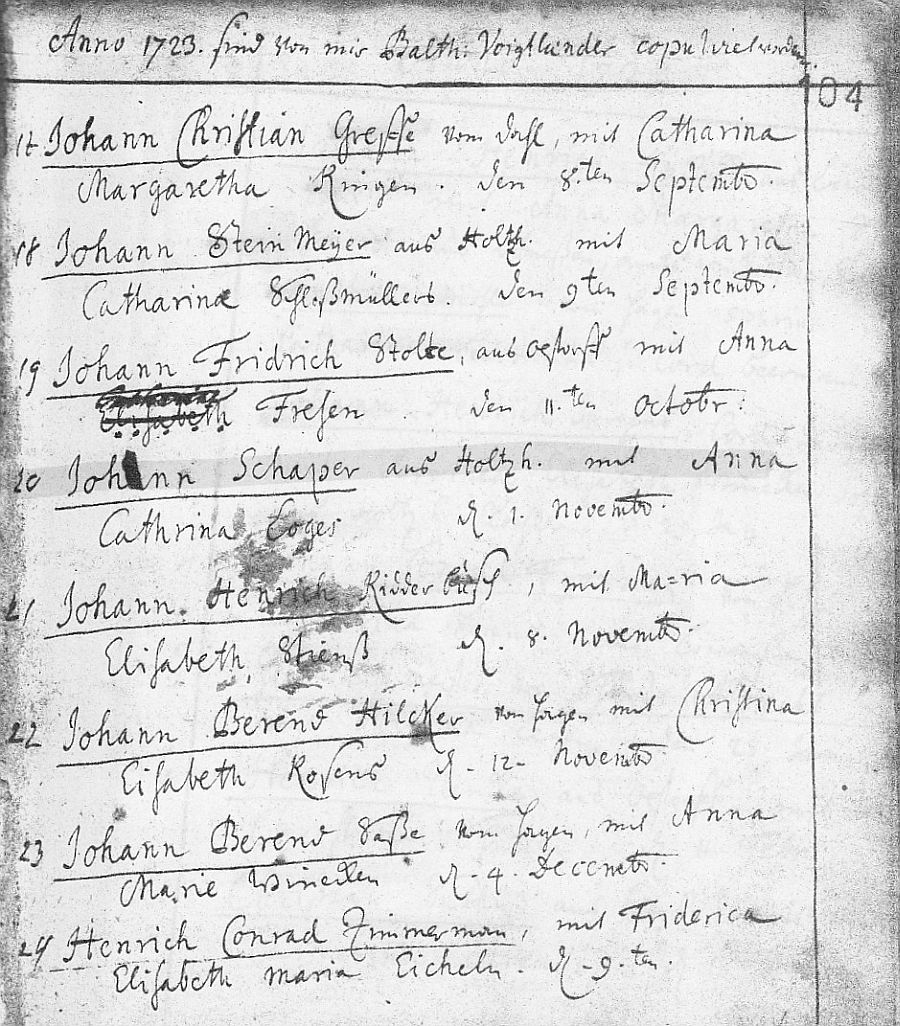 Anno 1723. sind von mir Balth: Voigtlander copuliret worden.
104
17 Johann Christian Greffe vom Dahl, mit Catharina
Margaretha Ringen. den 8.ten Septembr.
18 Johann Stein Meyer aus Holtzh. mit Maria
Catharina Schloßmüllers. den 9ten Septembr.
19 Johann Fridrich Stolte, aus mit Anna
Elisabeth Fresen den 11.ten Octobr:
20 Johann Schaper aus Holtzh. mit Anna
Cathrina Loges d. 1. Novembr.
21 Johann Henrich Ridder Busch, mit Ma=ria
Elisabeth d. 8. Novembr.
22 Johann Berend Hilcker von Hagen mit Christina
Elisabeth Rosens d. 12. Novembr
23 Johann Berend Saße vom Hagen, mit Anna
Marie d. 4. Decembr.
24 Henrich Conrad Zimmerman, mit Friderica
Elisabeth maria Eicheln. d. 9.ten.